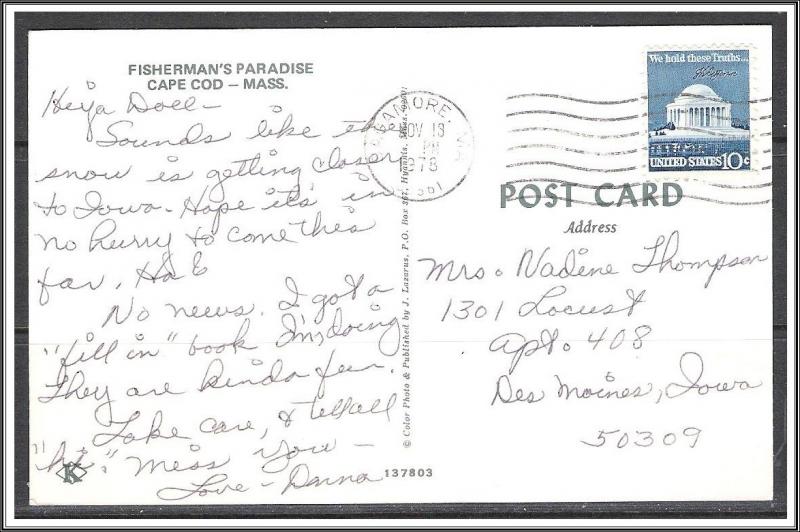 FISHERMAN'S PARADISE
CAPE COD – MASS.
Heya Doll –
Sounds like the
snow is getting closer
to Iowa. Hope it's in
no hurry to come this
far. Ha
No news. I got a
"fill in" book I'm doing
They are kinda fun.
Take care, & tell all
"hi." Miss you –
Love – Danna
K
137803
© Color Photo & Published by J. Lazarus, P.O. Box 367, Hyannis, Mass. 02601
SAGAMORE, MA
NOV 13
PM
1978
02561
We hold these Truths...
UNITED STATES 10c
POST CARD
Address
Mrs. Nadine Thompson
1301 Locust
Apt. 408
Des Moines, Iowa
50309